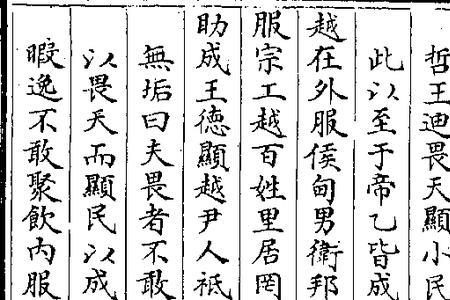 哲王迪畏天顯小民
此以至于帝乙皆成
越在外服侯甸男衛邦
服宗工越百姓里居罔
助成王德顯越尹人祗
無垢曰夫畏者不敢
以畏天而顯民以成
暇逸不敢聚飲內服